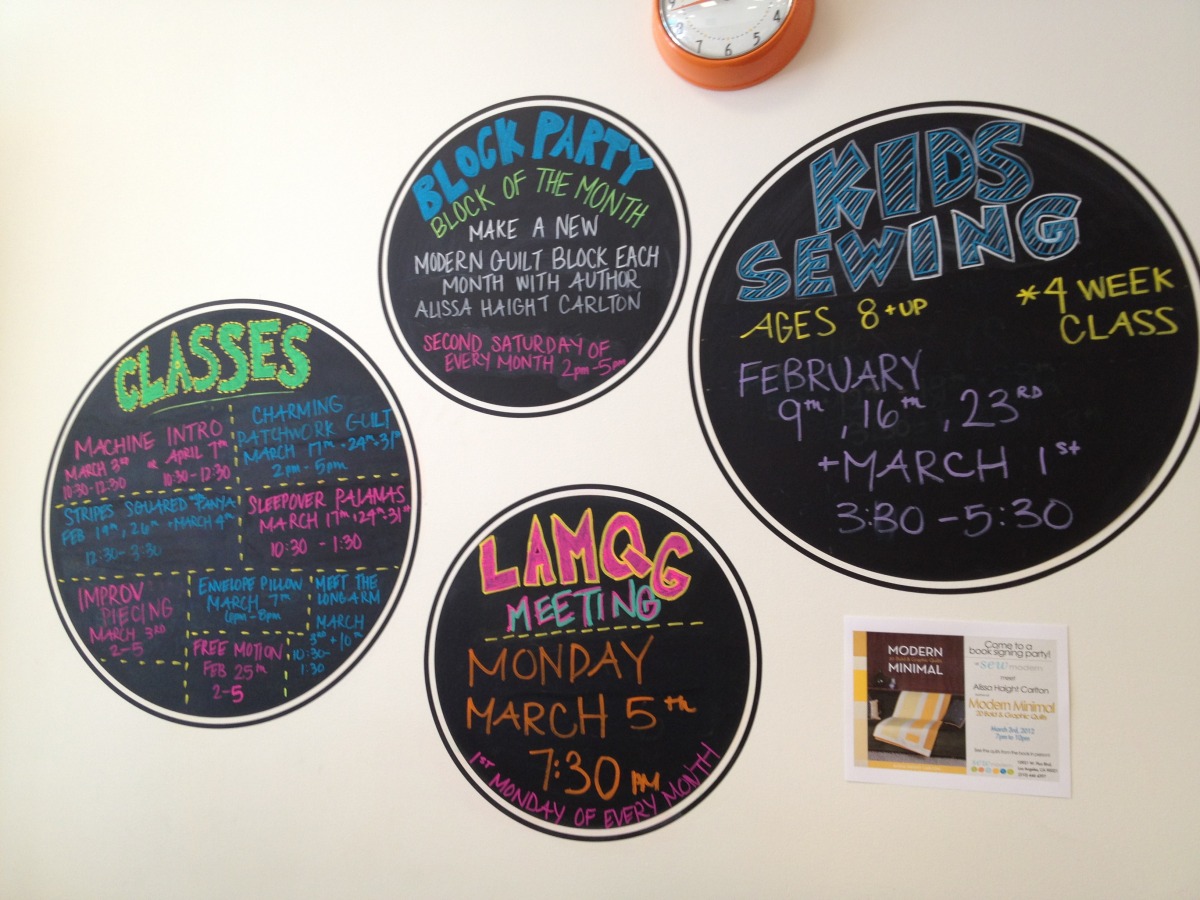 9
8
7
6
5
4
BLOCK PARTY
BLOCK OF THE MONTH
MAKE A NEW
MODERN QUILT BLOCK EACH
MONTH WITH AUTHOR
ALISSA HAIGHT CARLTON
SECOND SATURDAY OF
EVERY MONTH 2pm-5pm
KIDS
SEWING
AGES 8+UP
*4 WEEK
CLASS
FEBRUARY
9th, 16th, 23RD
+MARCH 1st
3:30-5:30
CLASSES
MACHINE INTRO
MARCH 3rd or APRIL 7th
10:30-12:30 10:30-12:30
CHARMING
PATCHWORK QUILT
MARCH 17th-24th-31st
2pm-5pm
STRIPES SQUARED
FEB 19th, 26th +MARCH 4th
12:30-3:30
SLEEPOVER PAJAMAS
MARCH 17th+24th-31st
10:30 - 1:30
IMPROV
PIECING
MARCH 3rd
2-5
ENVELOPE PILLOW
MARCH 7th
6pm-8pm
MEET THE
LONGARM
MARCH
3rd + 10th
10:30-
1:30
FREE MOTION
FEB 25th
2-5
LAMQG
MEETING
MONDAY
MARCH 5th
7:30 PM
1ST MONDAY OF EVERY MONTH
MODERN
20 Bold & Graphic Quilts
MINIMAL
Come to a
book signing party!
at sew modern
meet
Alissa Haight Carlton
Modern Minimal
20 Bold & Graphic Quilts
March 3rd, 2012
7pm to 10pm
See the quilts from the book in person!
sew modern
Los Angeles, CA